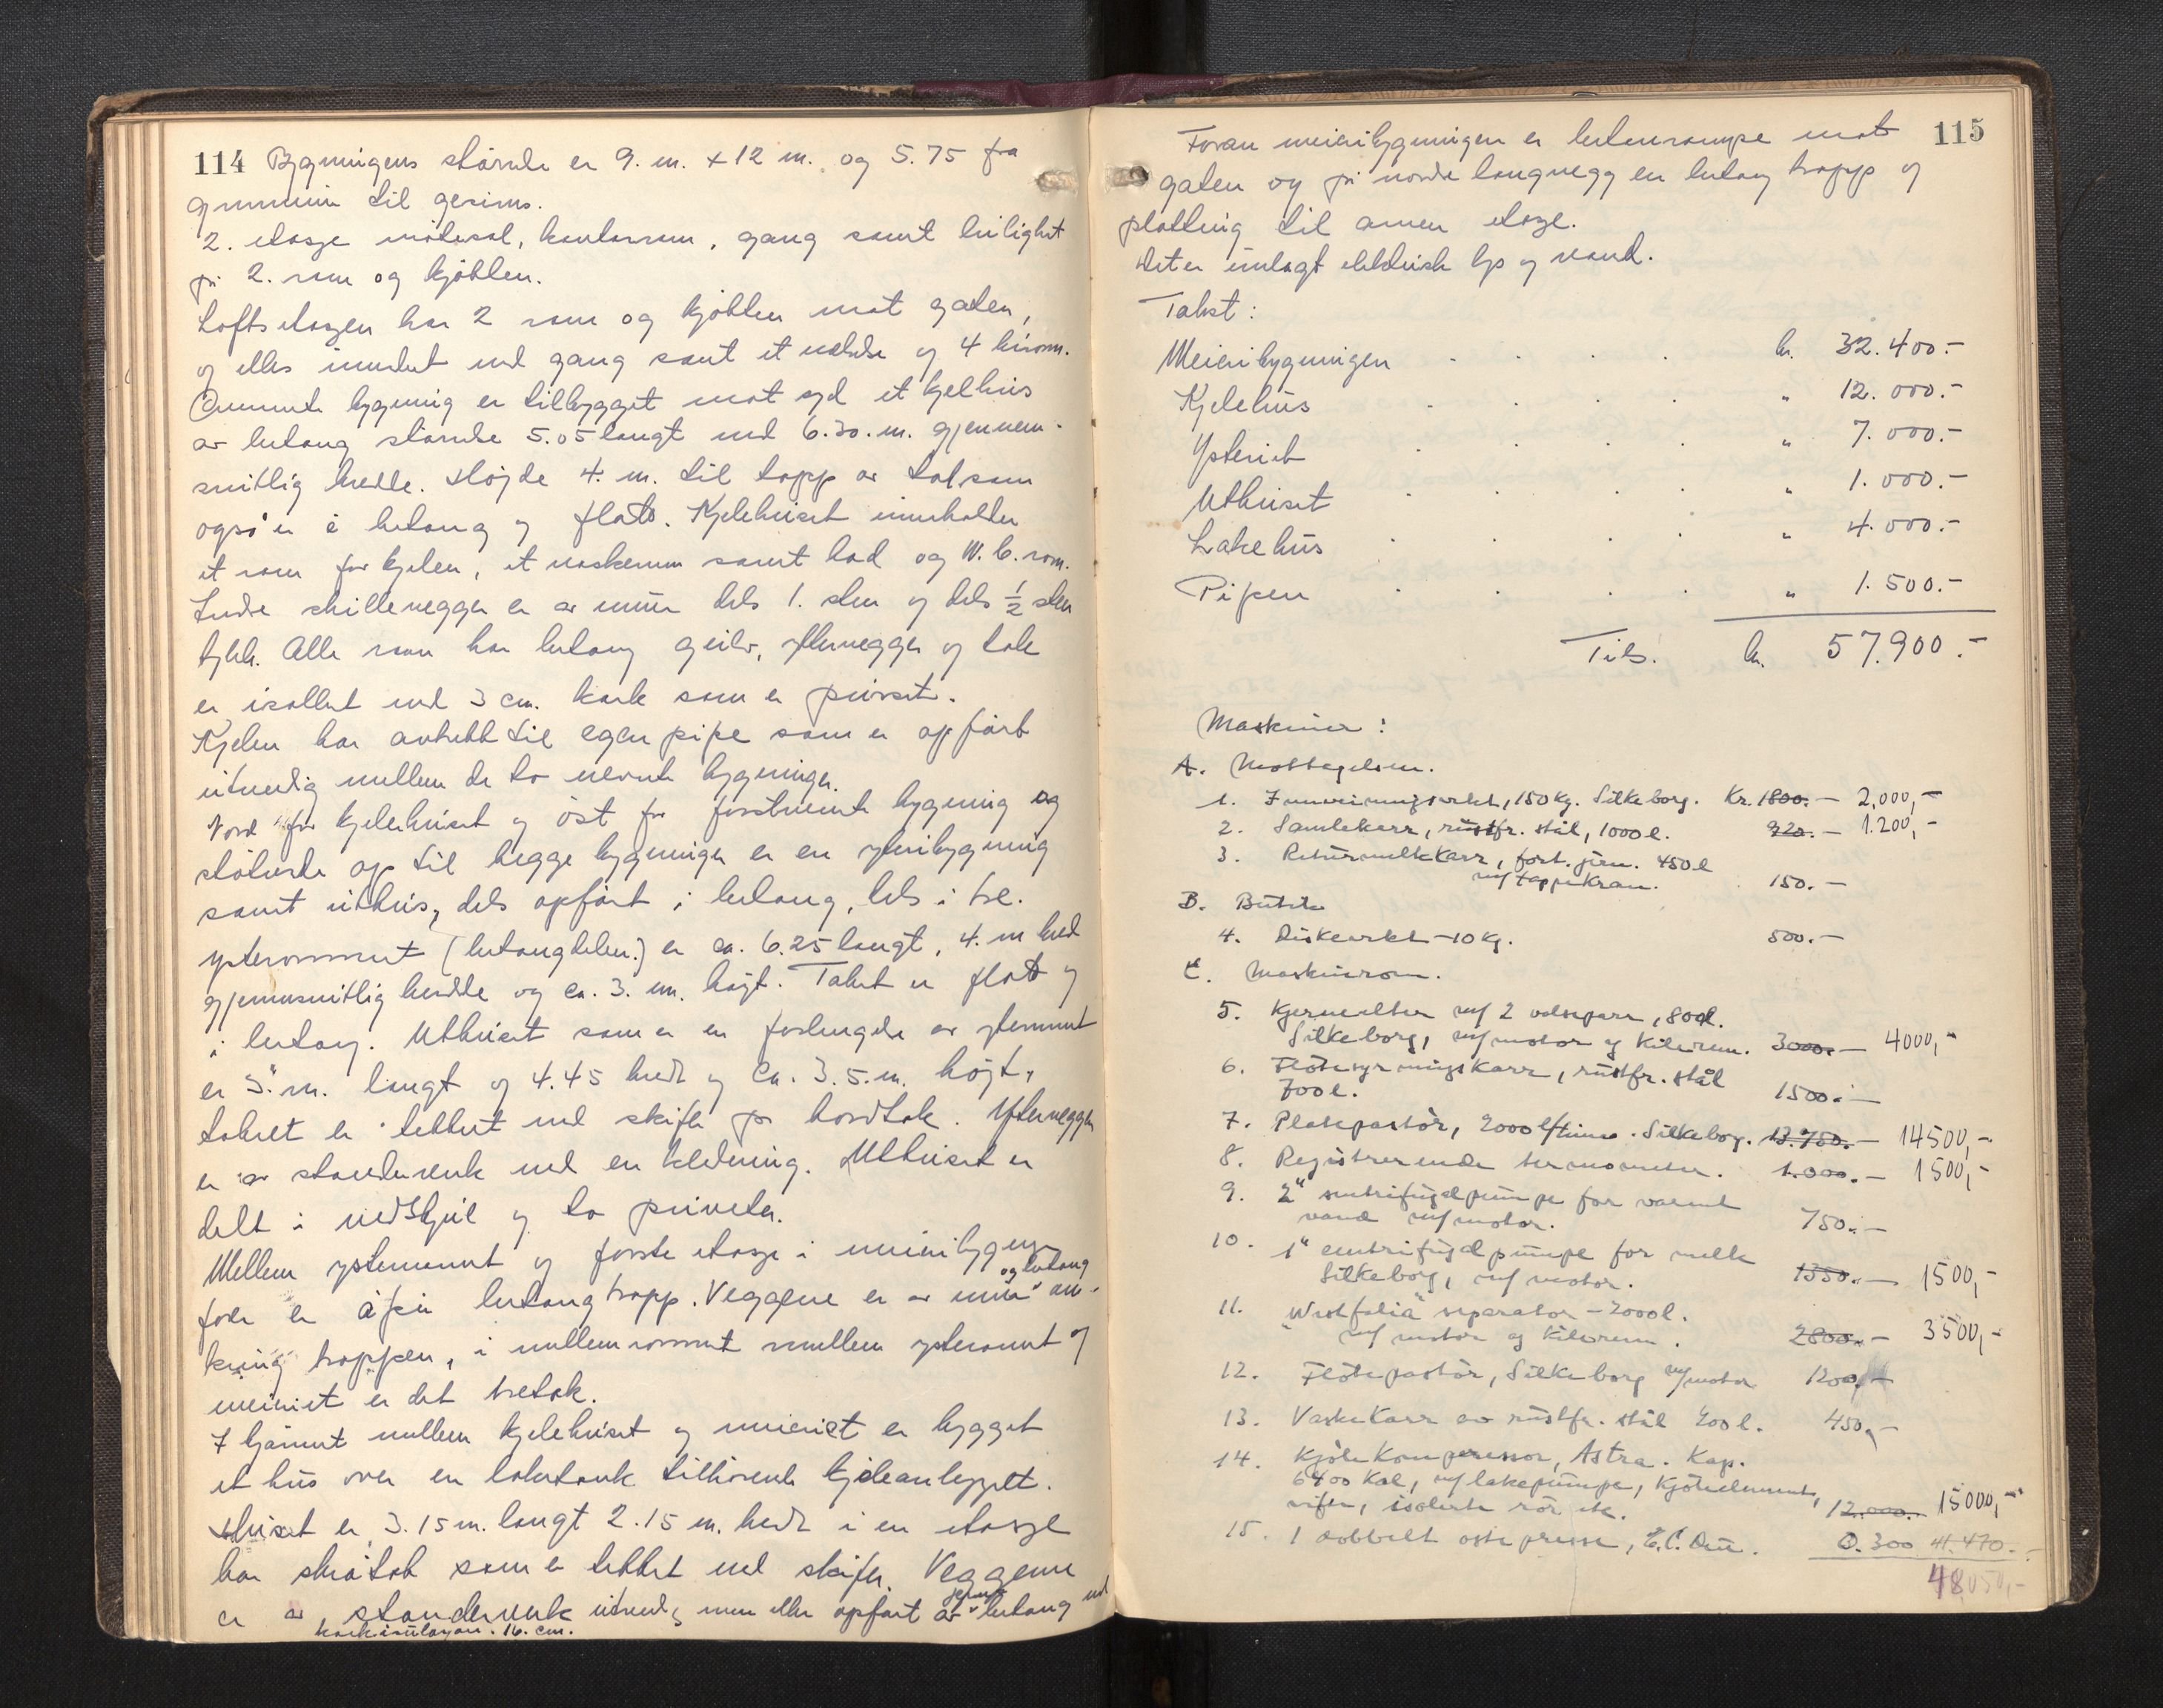 114 Bygningens størrelse er 9. m. x 12 m. og 5.75 fra
grunnmur til gesims.
2. etasje møtesal, kontorrom, gang samt leilighet
på 2. rom og kjøkken.
Loftsetasjen har 2 rom og kjøkken mot gaten,
og elles innredet med gang samt et vaskeri og 4 borom.
Ovennevnte bygning er tilbygget mot syd et kjelhus
av betong størrelse 5.05 langt med 6.30. m. gjennem-
snitlig bredde. Højde 4. m. til topp av tak som
også er i betong og flatt. Kjelehuset inneholder
et rom for kjelen, et vaskerum samt bad og W.C. rom.
Indre skillevegger er av mur dels 1. sten og dels ½ sten
tykk. Alle rom har betong gulv, yttervegger og tak
er isollert med 3 cm. kork som er pusset.
Kjelen har avtrekk til egen pipe som er opført
utvendig mellem de to nevnte bygninger.
Nord for kjelehuset og øst for førstnevnte bygning og
støtende op til begge bygninger er en ysteribygning
samt uthus, dels opført i betong, dels i tre.
Ysterommet (betongdelen.) er ca. 6.25 langt, 4. m bred
gjennomsnitlig bredde og ca. 3. m. høyt. Taket er flatt og
i betong. Uthuset som er en forlengelse av ysterommet
er 5. m. langt og 4.45 bredt og ca. 3.5. m. højt,
taket er tekket med skifer på bordtak. Yttervegger
er av stenderverk med en kledning. Uthuset er
delt i vedskjul og to priveter.
Mellem ysterommet og første etasje i meieribygnin-
gen er åpen betong trapp. Veggene er av mur og betong om-
kring trappen, i mellemrommet mellem ysterommet og
meieriet er det tretak.
I hjørnet mellem kjelehuset og meieriet er bygget
et hus over en laketank tilhørende kjøleanlegget.
Huset er 3.15 m. langt 2.15 m. bredt i en etasje
har skråtak som er tekket med skifer. Veggene
er av stenderverk utvendig men eller opført av jern betong med
korkisolasjon. 16. cm.
115
Foran meieribygningen er betongrampe mot
gaten og på nordre langvegg en betong trapp og
platting til annen etasje.
Det er innlagt elektrisk lys og vand.
Takst:
Meieribygningen . . . . kr. 32.400.-
Kjelehus . . . . " 12.000.-
Ysteriet . . . . " 7.000.-
Uthuset . . . . " 1.000.-
Lakehus . . . . " 4.000.-
Pipen . . . . " 1.500.-
Tils. kr. 57.900.-
Maskiner:
A. Mottagelsen.
1. Innveiningsvekt, 150 kg. Silkeborg. Kr. 1800.- 2,000,-
2. Samlekarr, rustfr. stål, 1000 l. 920.- 1.200,-
3. Returmelkkarr, fort. jern. 450 l
m/tappekran. 150.-
B. Butikk
4. Diskevekt - 10 kg. 500.-
C. Maskinrom.
5. Kjerneelter m/ 2 valsepar, 800l.
Silkeborg, m/motor og kilerem. 3000.- 4000,-
6. Fløtesyrningskarr, rustfr. stål
700 l. 1500.-
7. Platepastør, 2000 l/time. Silkeborg. 13.750.- 14500,-
8. Registrerende termometer. 1.000.- 1500,-
9. 2" sentrifugalpumpe for varmt
vand m/motor. 750.-
10. 1" centrifugalpumpe for melk
Silkeborg, m/motor. 1350.- 1500,-
11. "Westfalia" separator - 2000 l.
m/motor og kilerem. 2800.- 3500,-
12. Fløtepastør, Silkeborg m/motor 1200,-
13. Vaskekarr av rustfr. stål 400 l. 450,-
14. Kjølekompressor, Astra. Kap.
6400 Kal, m/lakepumpe, kjøleelement,
vifter, isolerte rør etc. 12.000.- 15000,-
15. 1 dobbelt ostepresse, 0.300 41.470.-
48050,-